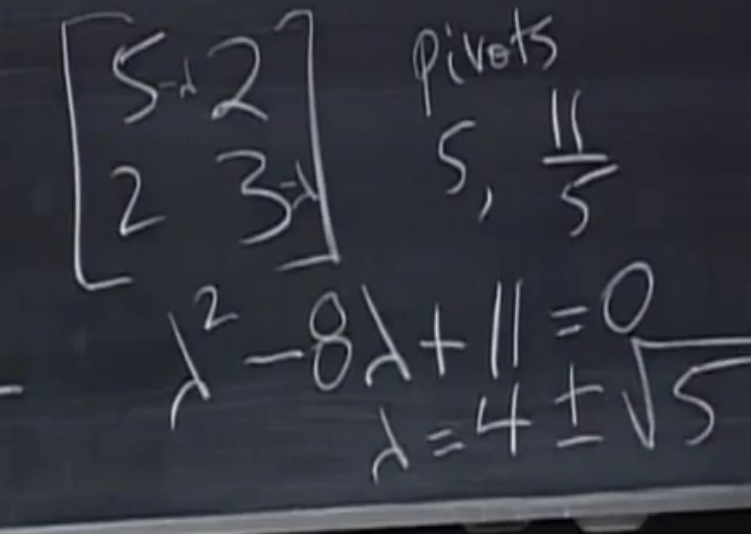 5-λ 2
2 3-λ
pivots
5, 11/5
λ² - 8λ + 11 = 0
λ = 4 ± √5